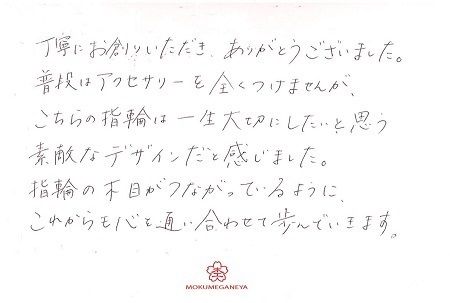 丁寧にお創りいただき、ありがとうございました。
普段はアクセサリーを全くつけませんが、
こちらの指輪は一生大切にしたいと思う
素敵なデザインだと感じました。
指輪の木目がつながっているように、
これからも心を通い合わせて歩んでいきます。
MOKUMEGANEYA